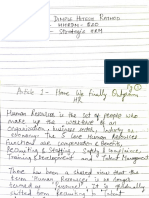 Dimple Hitesh Rathod
HHRDM - 520
- Strategic HRM
Pg 1
Article 1 - Have We Finally Outgrown
HR
Human Resources is the set of people who
make up the workforce of an
organisation, business sector, industry or
economy. The 5 core Human Resources
functions are compensation & Benefits,
Recruiting & Staffing, Safety & Compliance,
Training & Development and Talent Management
There has been a shared view that the
term Human Resources is no longer
termed as It is gradually
shifted from Recruiting to Talent